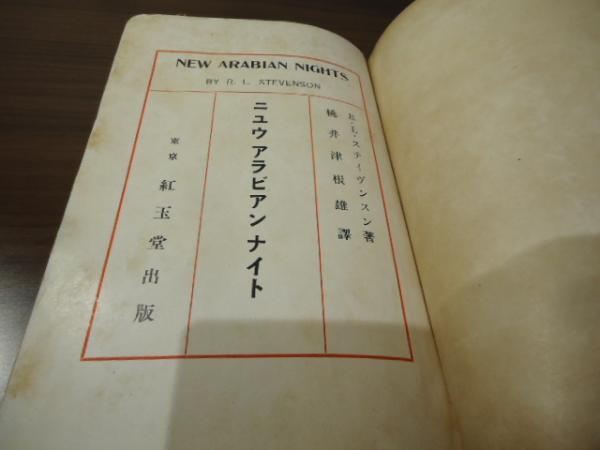 NEW ARABIAN NIGHTS
BY R. L. STEVENSON
R・L・スティヴンスン著
桃井津根雄譯
ニユウ アラビアン ナイト
東京 紅玉堂出版